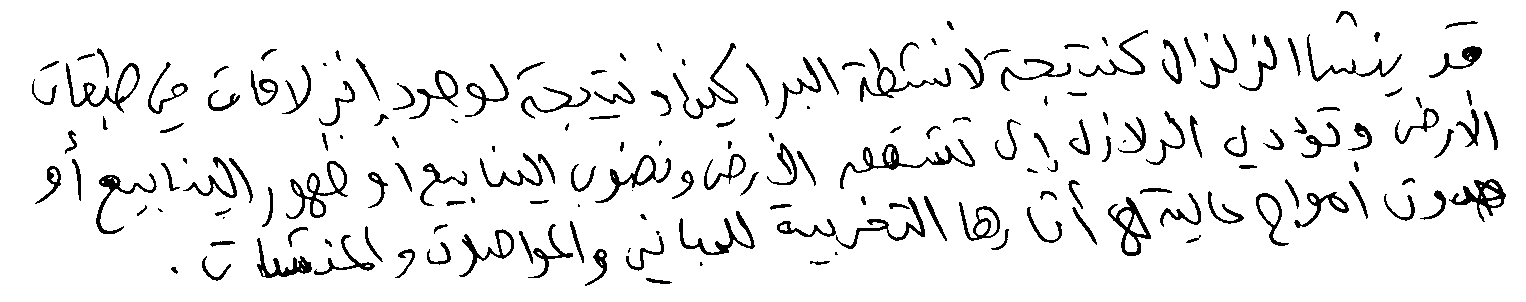 قد ينشا الزلزال كنتيجة لأنشطة البراكين أو نتيجة لوجود إنزلاقات في طبقات
الأرض وتؤدي الزلازل إلى تشقق الأرض ونضوب الينابيع أو ظهور الينابيع أو
حدوث أمواج عالية لها أثارها التخريبية للمباني والمواصلات والمنشآت .